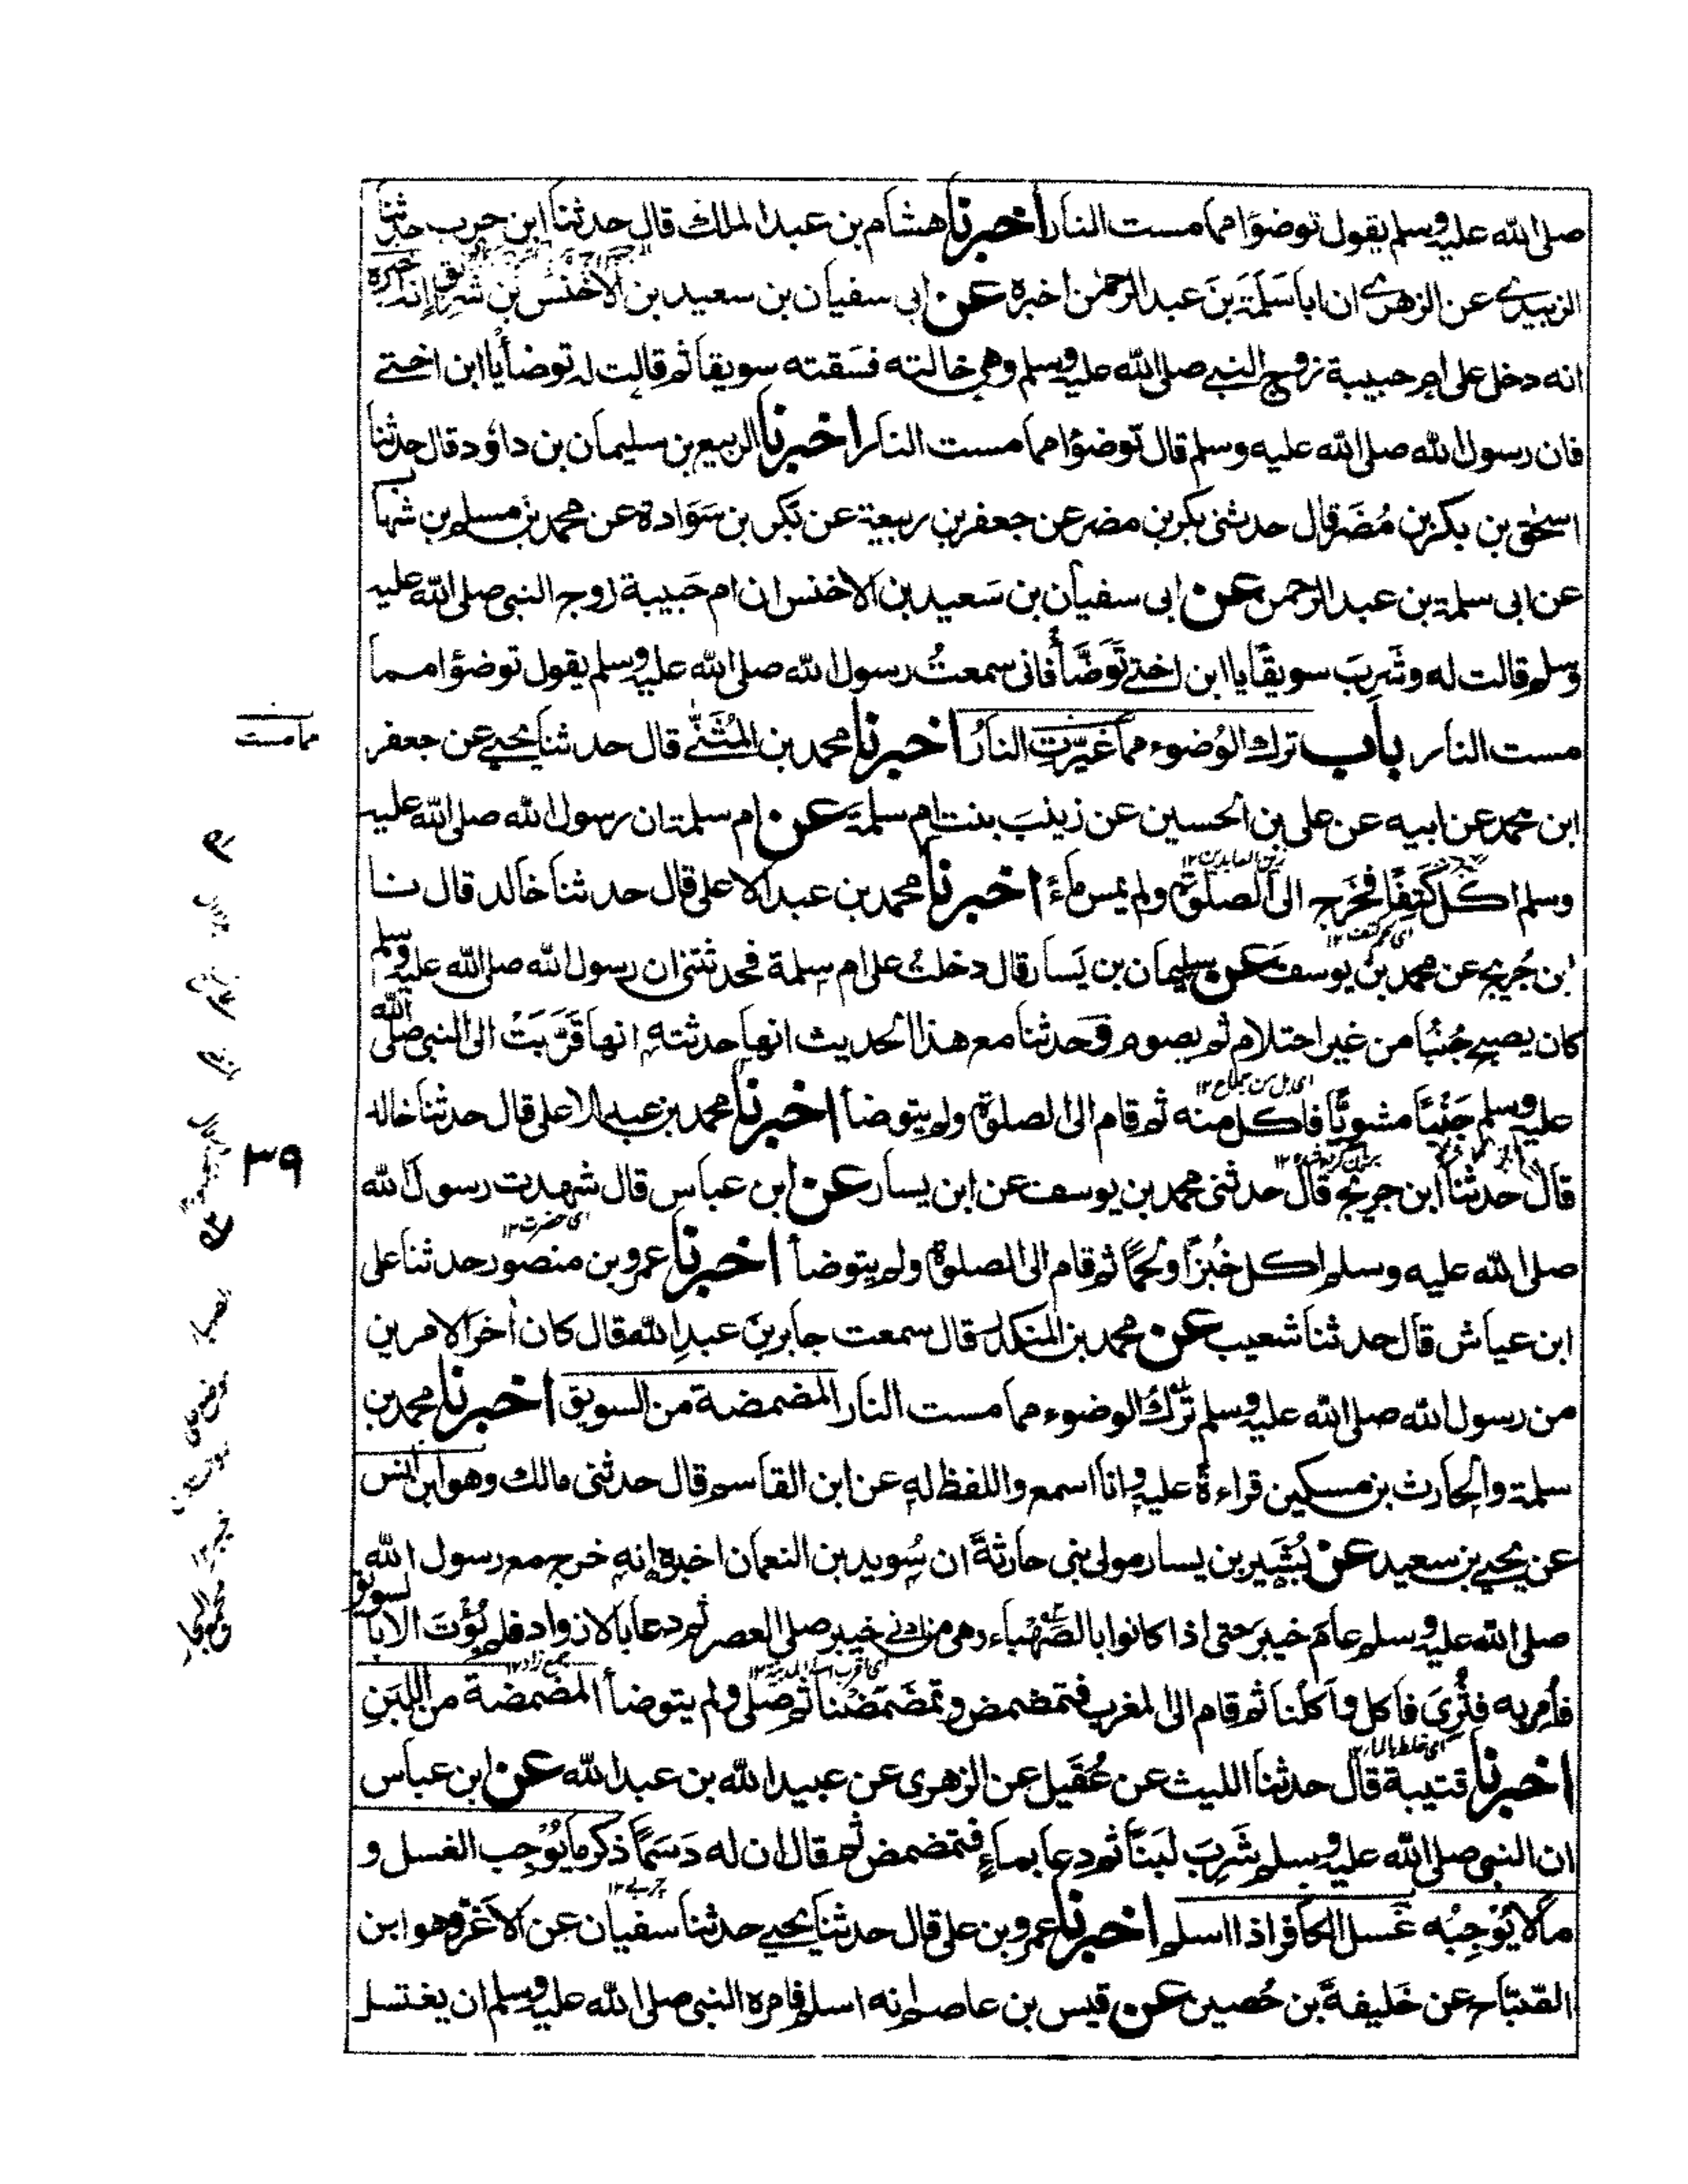 صلى الله عليه وسلم يقول توضؤا مما مست النار اخبرنا هشام بن عبد الملك قال حدثنا ابن حرب حدثنا
الزبيدي عن الزهري ان ابا سَلَمَة بنَ عبد الرحمٰن اخبره عن ابي سفيان بن سعيد بن الاخنس بن شريق انه اخبره
انه دخل على ام حبيبة زوج النبي صلى الله عليه وسلم وهي خالته فسَقته سويقا ثم قالت له توضأ يا ابن اختي
فان رسول الله صلى الله عليه وسلم قال توضؤا مما مست النار اخبرنا الربيع بن سليمان بن داؤد قال حدثنا
اسحٰق بن بكر بن مُضَر قال حدثني بكر بن مضر عن جعفر بن ربيعة عن بَكر بن سَوَادة عن محمد بن مسلم بن شهاب
عن ابي سلمة بن عبد الرحمن عن ابي سفيان بن سَعيد بن الاخنس ان ام حَبيبة زوج النبي صلى الله عليه
وسلم قالت له وشَرِبَ سويقًا يا ابن اختي تَوَضَّأ فاني سمعتُ رسول الله صلى الله عليه وسلم يقول توضؤا مما
مست النار باب ترك الوُضوء مما غيَّرت النارُ اخبرنا محمد بن المُثَنّٰى قال حدثنا يحيى عن جعفر
مما مست
ابن محمد عن ابيه عن علي بن الحسين عن زينبَ بنت ام سلمة عن ام سلمة ان رسول الله صلى الله عليه
زين العابدين ١٢
وسلم اكل كَتِفًا فخَرج الى الصلٰوة ولم يمس ماءً اخبرنا محمد بن عبد الاعلى قال حدثنا خالد قال نا
ابن جُريج عن محمد بن يوسف عن سليمان بن يَسار قال دخلتُ على ام سلمة فحدثتني ان رسول الله صلى الله عليه وسلم
كان يصبح جُنُبًا من غير احتلام ثم يصوم وحدثنا مع هذا الحديث انها حدثته انها قَرَّبَتْ الى النبي صلى الله
اى بل من جماع ١٢
عليه وسلم جَنْبًا مشويًّا فاكل منه ثم قام الى الصلوة ولم يتوضأ اخبرنا محمد بن عبد الاعلى قال حدثنا خالد
٣٩
قال حدثنا ابن جريج قال حدثني محمد بن يوسف عن ابن يسار عن ابن عباس قال شهدت رسول الله
اى حضرت ١٢
صلى الله عليه وسلم اكل خُبْزًا ولحمًا ثم قام الى الصلوة ولم يتوضأ اخبرنا عمرو بن منصور حدثنا علي
ابن عياش قال حدثنا شعيب عن محمد بن المنكدر قال سمعت جابر بنَ عبدِ الله قال كان اٰخر الامرين
من رسول الله صلى الله عليه وسلم تَرْك الوضوء مما مست النار المضمضة من السويق اخبرنا محمد بن
سلمة والحارث بن مسكين قراءةً عليه وانا اسمع واللفظ له عن ابن القاسم قال حدثني مالك وهو ابن انس
عن يحيى بن سعيد عن بُشَير بن يسار مولى بني حارثةَ ان سُويد بن النعمان اخبره انه خرج مع رسول الله
صلى الله عليه وسلم عامَ خيبر حتى اذا كانوا بالصَّهباء وهي من ادنى خيبر صلى العصر ثم دعا بالازواد فلم يُؤْتَ الا بالسويق
جمع زاد ١٢
فأمر به فثُرِّيَ فاكل واكلنا ثم قام الى المغرب فتمضمض وتمضمضنا ثم صلى ولم يتوضأ المضمضة من اللبنِ
اى خلط بالماء ١٢
اخبرنا قتيبة قال حدثنا الليث عن عُقَيل عن الزهري عن عبيد الله بن عبد الله عن ابن عباس
ان النبي صلى الله عليه وسلم شَرِبَ لبَنًا ثم دعا بماءٍ فتمضمض ثم قال ان له دَسَمًا ذكر ما يُوجب الغسل و
چربى ١٢
ما لا يُوْجِبُه غسل الكافر اذا اسلم اخبرنا عمرو بن علي قال حدثنا يحيى حدثنا سفيان عن الاغَرّ وهو ابن
الصَّبّاح عن خَليفةَ بن حُصين عن قيس بن عاصم انه اسلم فامره النبي صلى الله عليه وسلم ان يغتسل